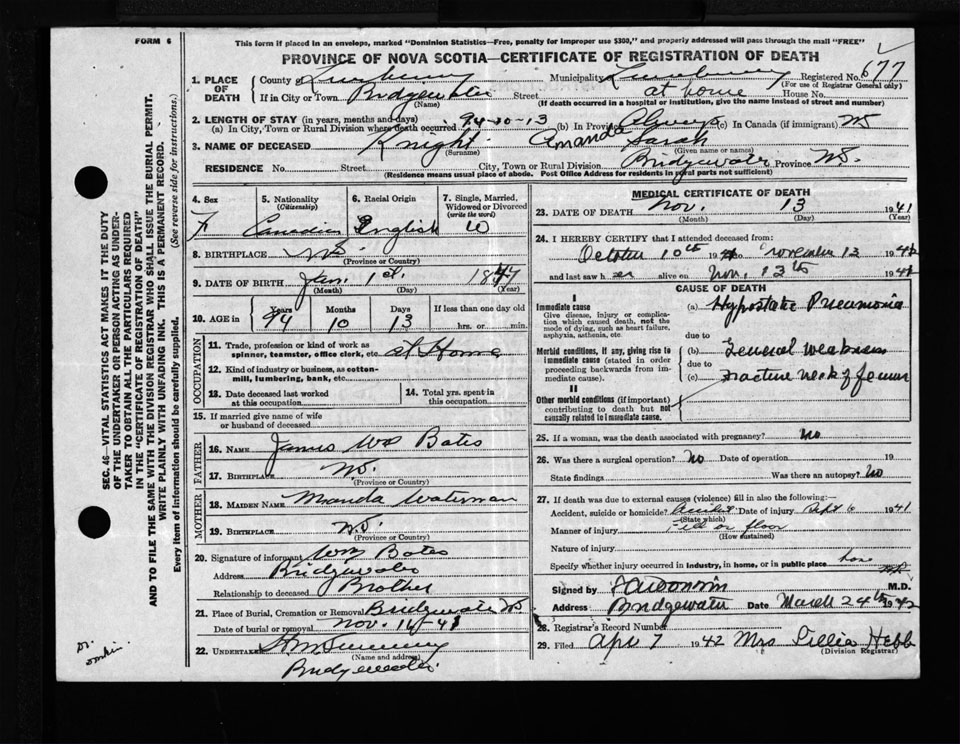 FORM 6
This form if placed in an envelope, marked "Dominion Statistics—Free, penalty for improper use $300," and properly addressed will pass through the mail "FREE"
PROVINCE OF NOVA SCOTIA—CERTIFICATE OF REGISTRATION OF DEATH
1. PLACE OF DEATH County of Lunenburg Municipality Lunenburg Registered No. 677
(For use of Registrar General only)
If in City or Town Bridgewater Street at home House No.
(Name) (If death occurred in a hospital or institution, give the name instead of street and number)
2. LENGTH OF STAY (in years, months and days)
(a) In City, Town or Rural Division where death occurred 94-10-13 (b) In Province Always (c) In Canada (if immigrant)
3. NAME OF DECEASED Knight Amanda Sarah
(Surname) (Given name or names)
RESIDENCE No. Street City, Town or Rural Division Bridgewater Province N.S.
(Residence means usual place of abode. Post Office Address for residents in rural parts not sufficient)
4. Sex 5. Nationality (Citizenship) 6. Racial Origin 7. Single, Married, Widowed or Divorced (write the word)
F Canadian English W
8. BIRTHPLACE N.S.
(Province or Country)
9. DATE OF BIRTH Jan. 1st. 1847
(Month) (Day) (Year)
10. AGE in Years Months Days If less than one day old
94 10 13 hrs. or min.
OCCUPATION
11. Trade, profession or kind of work as spinner, teamster, office clerk, etc. at Home
12. Kind of industry or business, as cotton-mill, lumbering, bank, etc.
13. Date deceased last worked at this occupation
14. Total yrs. spent in this occupation
15. If married give name of wife or husband of deceased
FATHER
16. NAME James Wm Bates
17. BIRTHPLACE N.S.
(Province or Country)
MOTHER
18. MAIDEN NAME Manda Waterman
19. BIRTHPLACE N.S.
(Province or Country)
20. Signature of informant Wm Bates
Address Bridgewater
Relationship to deceased Brother
21. Place of Burial, Cremation or Removal Bridgewater N.S.
Date of burial or removal Nov. 16-41
22. UNDERTAKER
(Name and address)
Bridgewater
MEDICAL CERTIFICATE OF DEATH
23. DATE OF DEATH Nov. 13 1941
(Month) (Day) (Year)
24. I HEREBY CERTIFY that I attended deceased from:
October 10th 1941 to november 13 1941
and last saw her alive on Nov. 13th 1941
CAUSE OF DEATH
I
Immediate cause
Give disease, injury or complication which caused death, not the mode of dying, such as heart failure, asphyxia, asthenia, etc.
(a) Hypostatic Pneumonia
due to
Morbid conditions, if any, giving rise to immediate cause (stated in order proceeding backwards from immediate cause).
(b) General Weakness
due to
(c) Fracture neck of femur
II
Other morbid conditions (if important) contributing to death but not causally related to immediate cause.
25. If a woman, was the death associated with pregnancy? No
26. Was there a surgical operation? No Date of operation 19
State findings Was there an autopsy? No
27. If death was due to external causes (violence) fill in also the following:—
Accident, suicide or homicide? Accident Date of injury Sept 6 1941
(State which)
Manner of injury Fell on floor
(How sustained)
Nature of injury
Specify whether injury occurred in industry, in home, or in public place home
Signed by M.D.
Address Bridgewater Date March 24th 1942
28. Registrar's Record Number
29. Filed Apr 7 1942 Mrs Lillia Hebb
(Division Registrar)
SEC. 46—VITAL STATISTICS ACT MAKES IT THE DUTY
OF THE UNDERTAKER OR PERSON ACTING AS UNDER-
TAKER TO OBTAIN ALL THE PARTICULARS REQUIRED
IN THE "CERTIFICATE OF REGISTRATION OF DEATH"
AND TO FILE THE SAME WITH THE DIVISION REGISTRAR WHO SHALL ISSUE THE BURIAL PERMIT.
WRITE PLAINLY WITH UNFADING INK. THIS IS A PERMANENT RECORD.
Every item of information should be carefully supplied. (See reverse side for instructions.)
Dr.